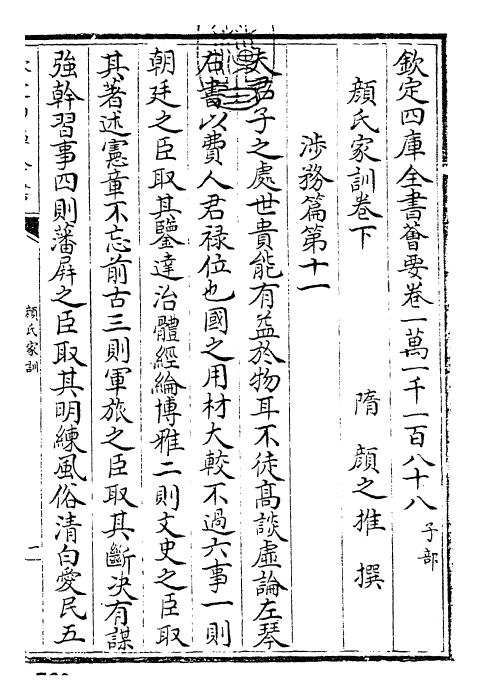 欽定四庫全書薈要卷一萬一千一百八十八子部
顔氏家訓卷下
隋顔之推撰
涉務篇第十一
夫君子之處世貴能有益於物耳不徒高談虛論左琴
右書以費人君祿位也國之用材大較不過六事一則
朝廷之臣取其鑒達治體經綸博雅二則文史之臣取
其著述憲章不忘前古三則軍旅之臣取其斷決有謀
強幹習事四則藩屏之臣取其明練風俗清白愛民五
顔氏家訓